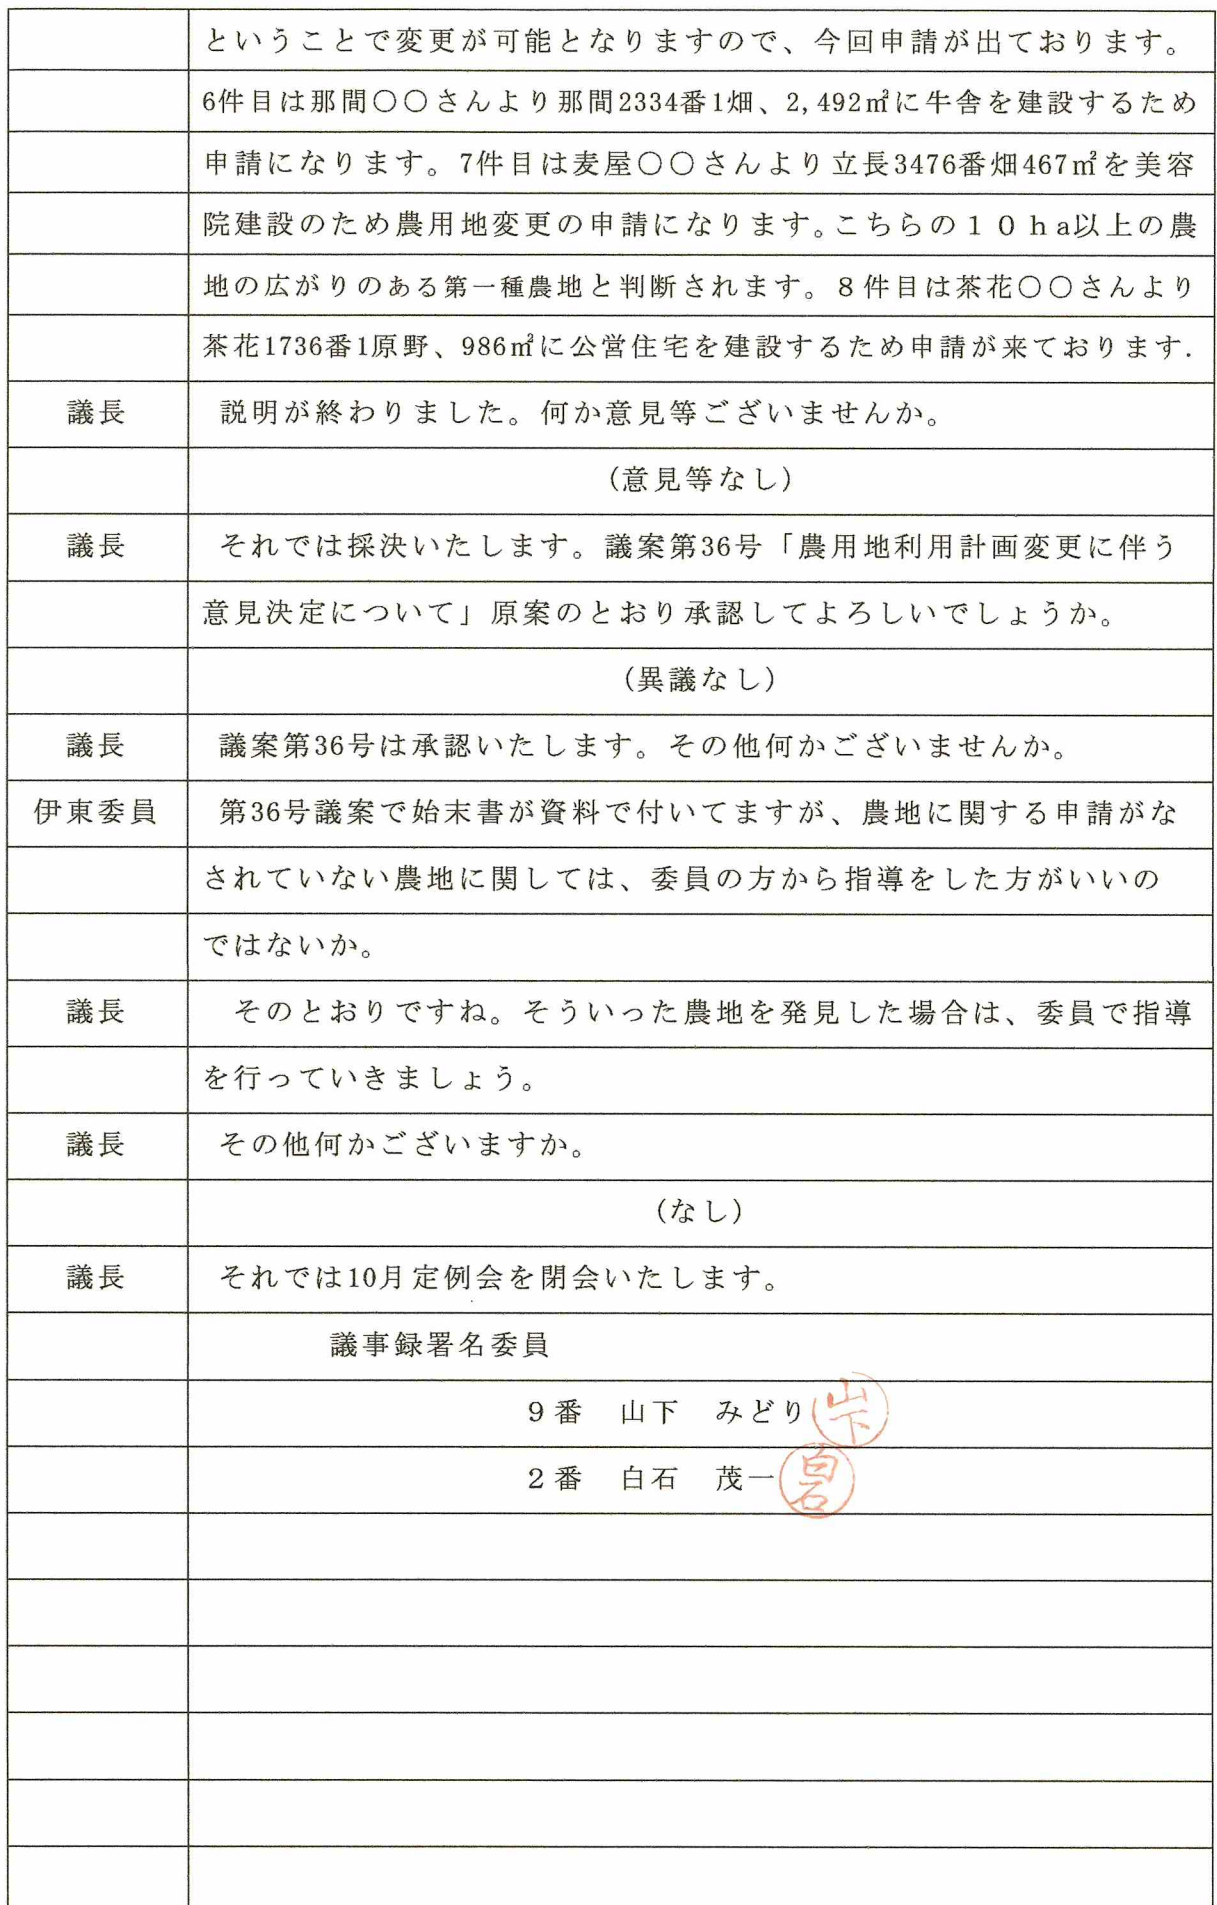 ということで変更が可能となりますので、今回申請が出ております。
6件目は那間〇〇さんより那間2334番1畑、2,492㎡に牛舎を建設するため
申請になります。7件目は麦屋〇〇さんより立長3476番畑467㎡を美容
院建設のため農用地変更の申請になります。こちらの１０ｈａ以上の農
地の広がりのある第一種農地と判断されます。８件目は茶花〇〇さんより
茶花1736番1原野、986㎡に公営住宅を建設するため申請が来ております.
議長 説明が終わりました。何か意見等ございませんか。
(意見等なし)
議長 それでは採決いたします。議案第36号「農用地利用計画変更に伴う
意見決定について」原案のとおり承認してよろしいでしょうか。
(異議なし)
議長 議案第36号は承認いたします。その他何かございませんか。
伊東委員 第36号議案で始末書が資料で付いてますが、農地に関する申請がな
されていない農地に関しては、委員の方から指導をした方がいいの
ではないか。
議長 そのとおりですね。そういった農地を発見した場合は、委員で指導
を行っていきましょう。
議長 その他何かございますか。
(なし)
議長 それでは10月定例会を閉会いたします。
議事録署名委員
９番　山下　みどり 山下
２番　白石　茂一 白石